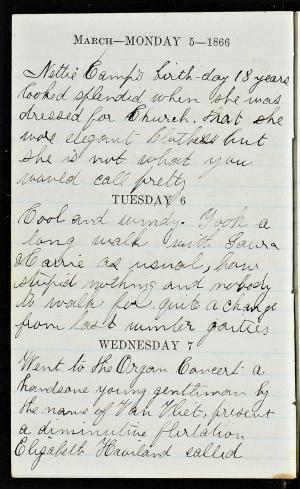 MARCH—MONDAY 5—1866
Nettie Camp's birth-day 18 years
looked splendid when she was
dressed for Church. that she
wore elegant Clothes but
she is not what you
would call pretty
TUESDAY 6
Cool and windy. Took a
long walk with Laura
Harrie as usual, how
stupid nothing and nobody
to walk for quite a change
from last winter parties
WEDNESDAY 7
Went to the Organ Concert a
handsome young gentleman by
the name of Van Vliet, present
a diminutive flirtation
Elizabeth Haviland called